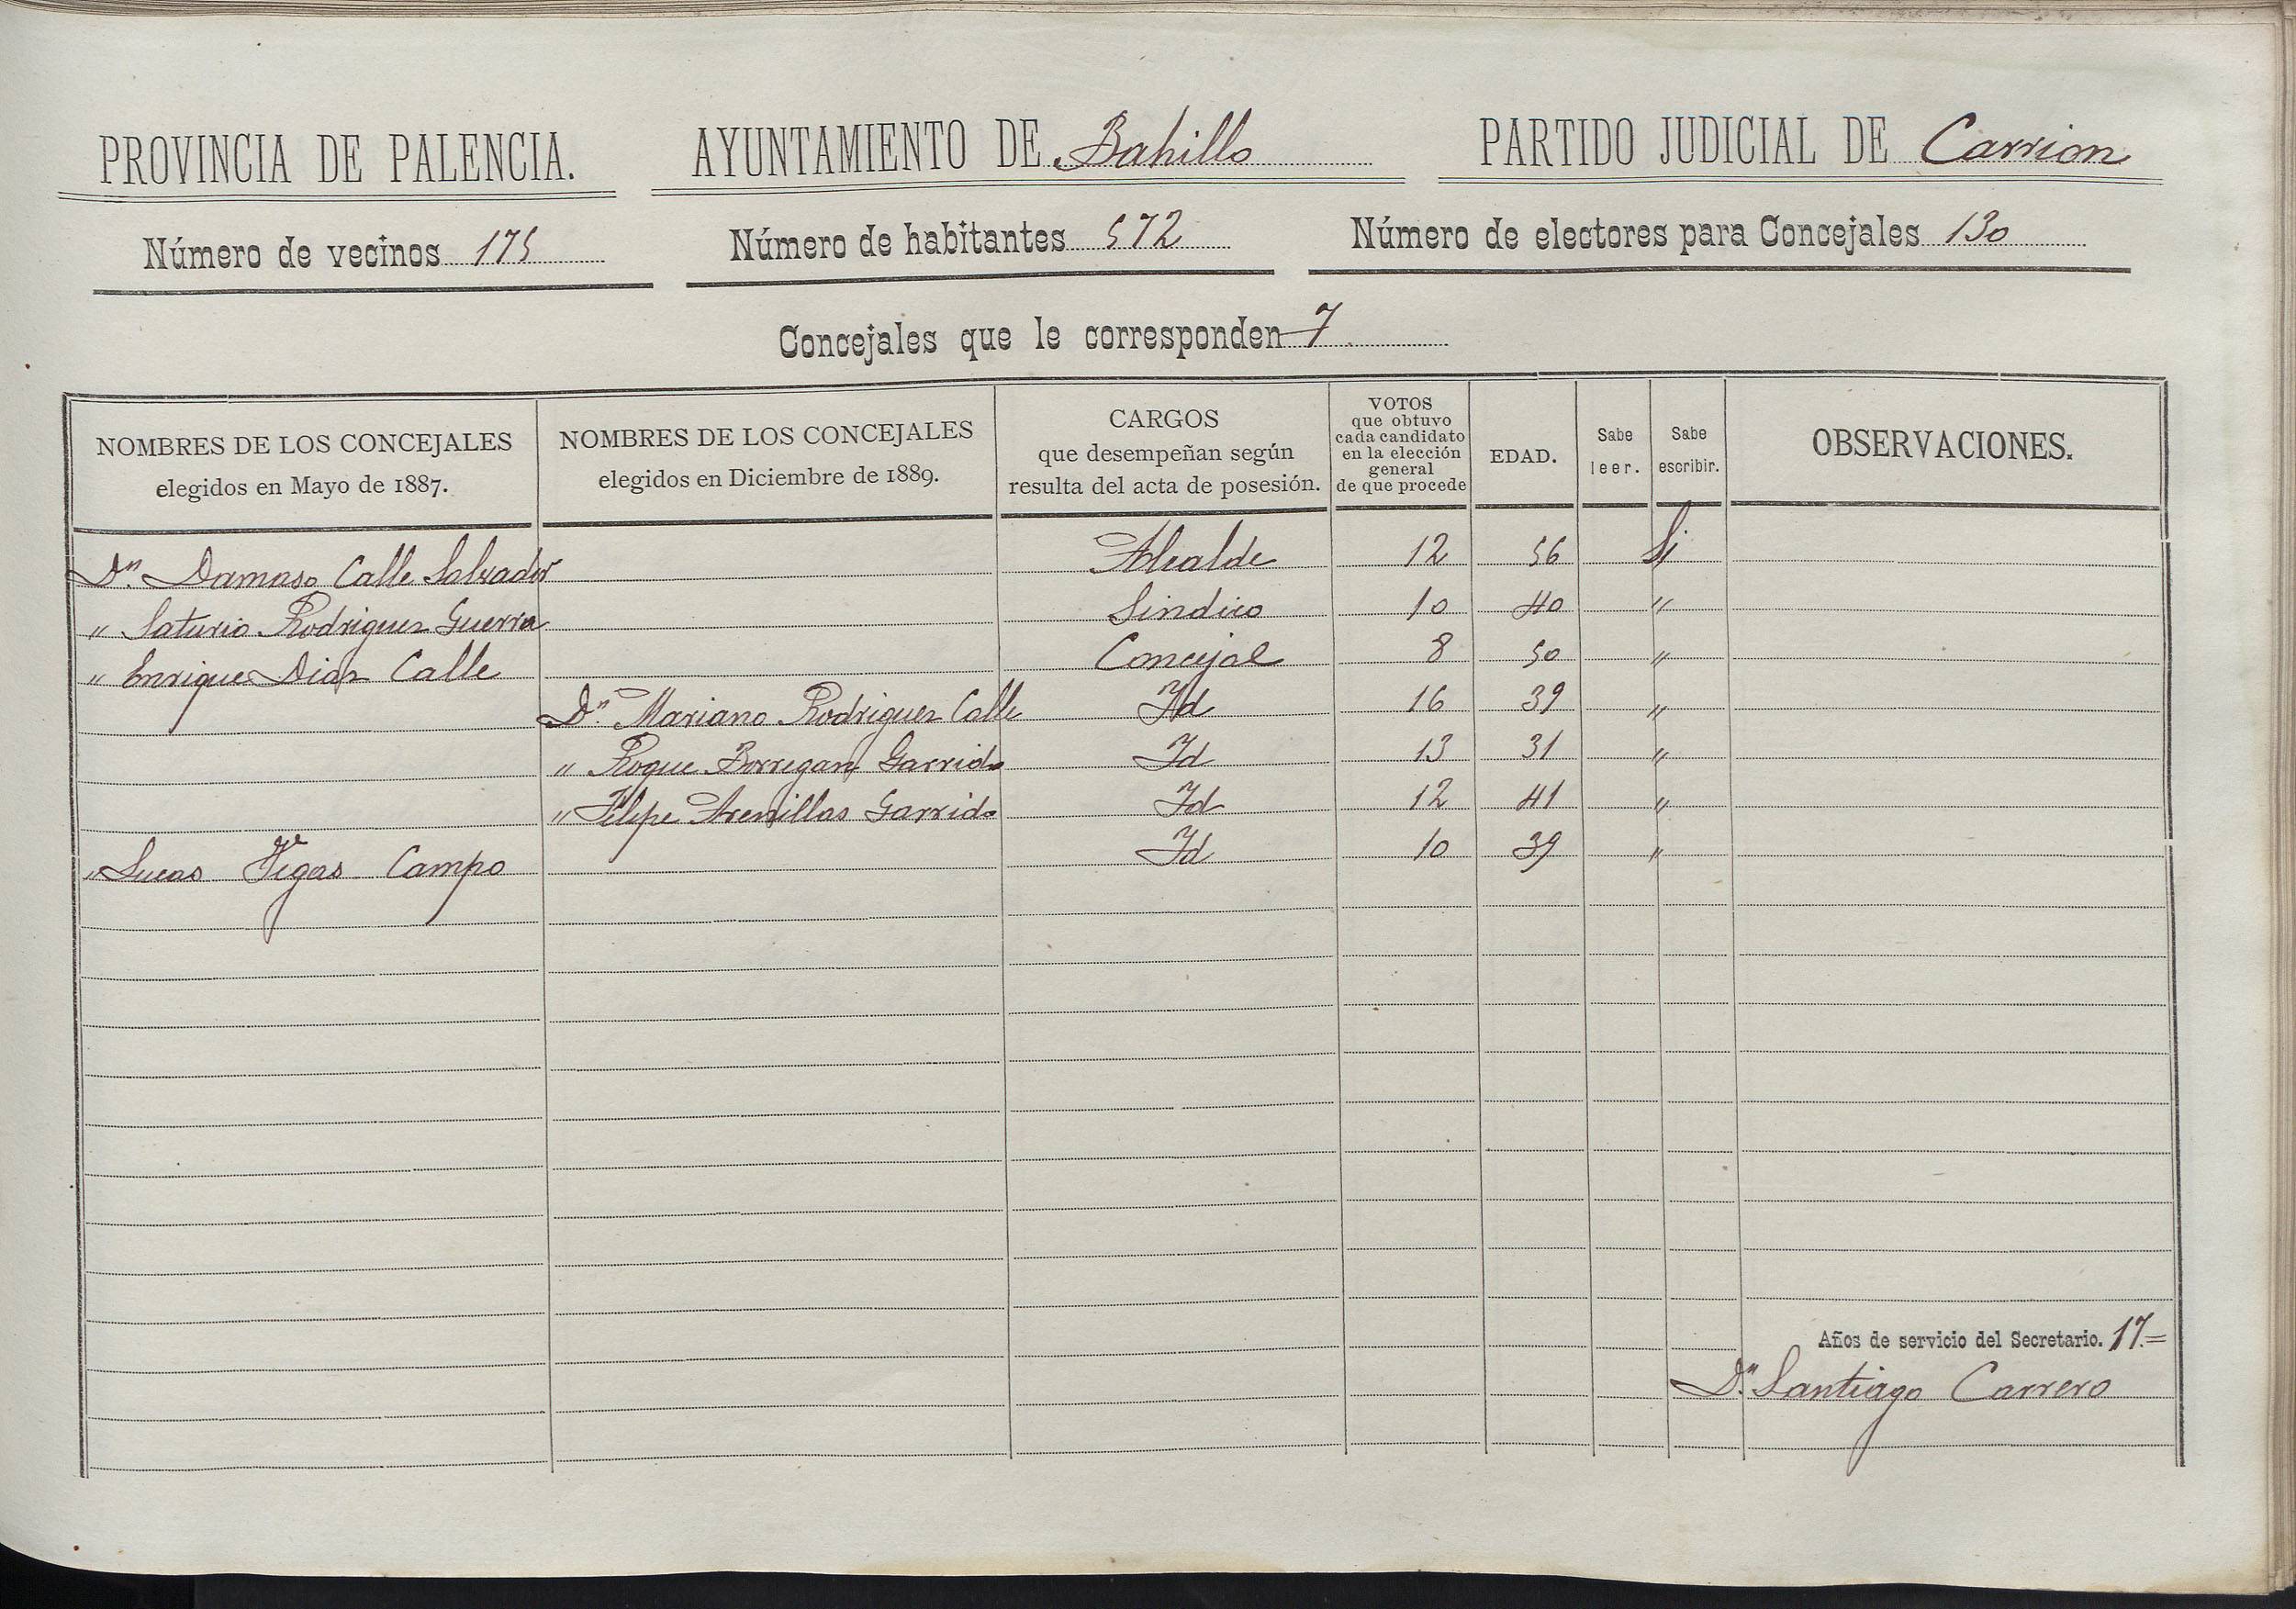 PROVINCIA DE PALENCIA. AYUNTAMIENTO DE Bahillo PARTIDO JUDICIAL DE Carrion
Número de vecinos 175 Número de habitantes 572 Número de electores para Concejales 130
Concejales que le corresponden 7
NOMBRES DE LOS CONCEJALES
elegidos en Mayo de 1887.
NOMBRES DE LOS CONCEJALES
elegidos en Diciembre de 1889.
CARGOS
que desempeñan según
resulta del acta de posesión.
VOTOS
que obtuvo
cada candidato
en la elección
general
de que procede
EDAD.
Sabe
leer.
Sabe
escribir.
OBSERVACIONES.
Dn. Damaso Calle Salvador Alcalde 12 56 Si
" Saturio Rodriguez Guerra Sindico 10 40 "
" Enrique Diaz Calle Concejal 8 50 "
Dn. Mariano Rodriguez Calle Id 16 39 "
" Roque Borregan Garrido Id 13 31 "
" Felipe Arenillas Garrido Id 12 41 "
" Lucas Vegas Campo Id 10 39 "
Años de servicio del Secretario. 17.=
Dn. Santiago Carrero